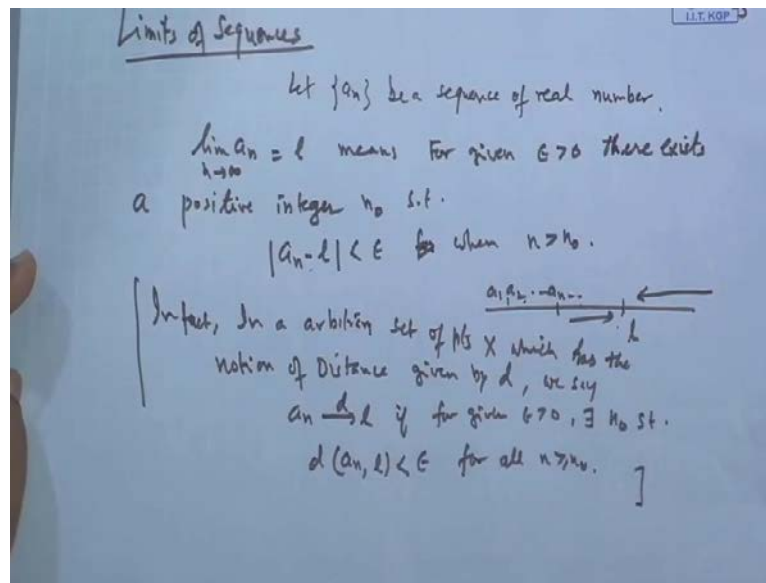 I.I.T. KGP
Limits of Sequences
Let {an} be a sequence of real number.
lim an = l means For given ε>0 there exists
n→∞
a positive integer n₀ s.t.
|an-l| < ε when n>n₀.
a₁,a₂,...an...
l
In fact, In a arbitrary set of pts X which has the
notion of Distance given by d, we say
an →d l if for given ε>0, ∃ n₀ st.
d(an, l) < ε for all n≥n₀. ]